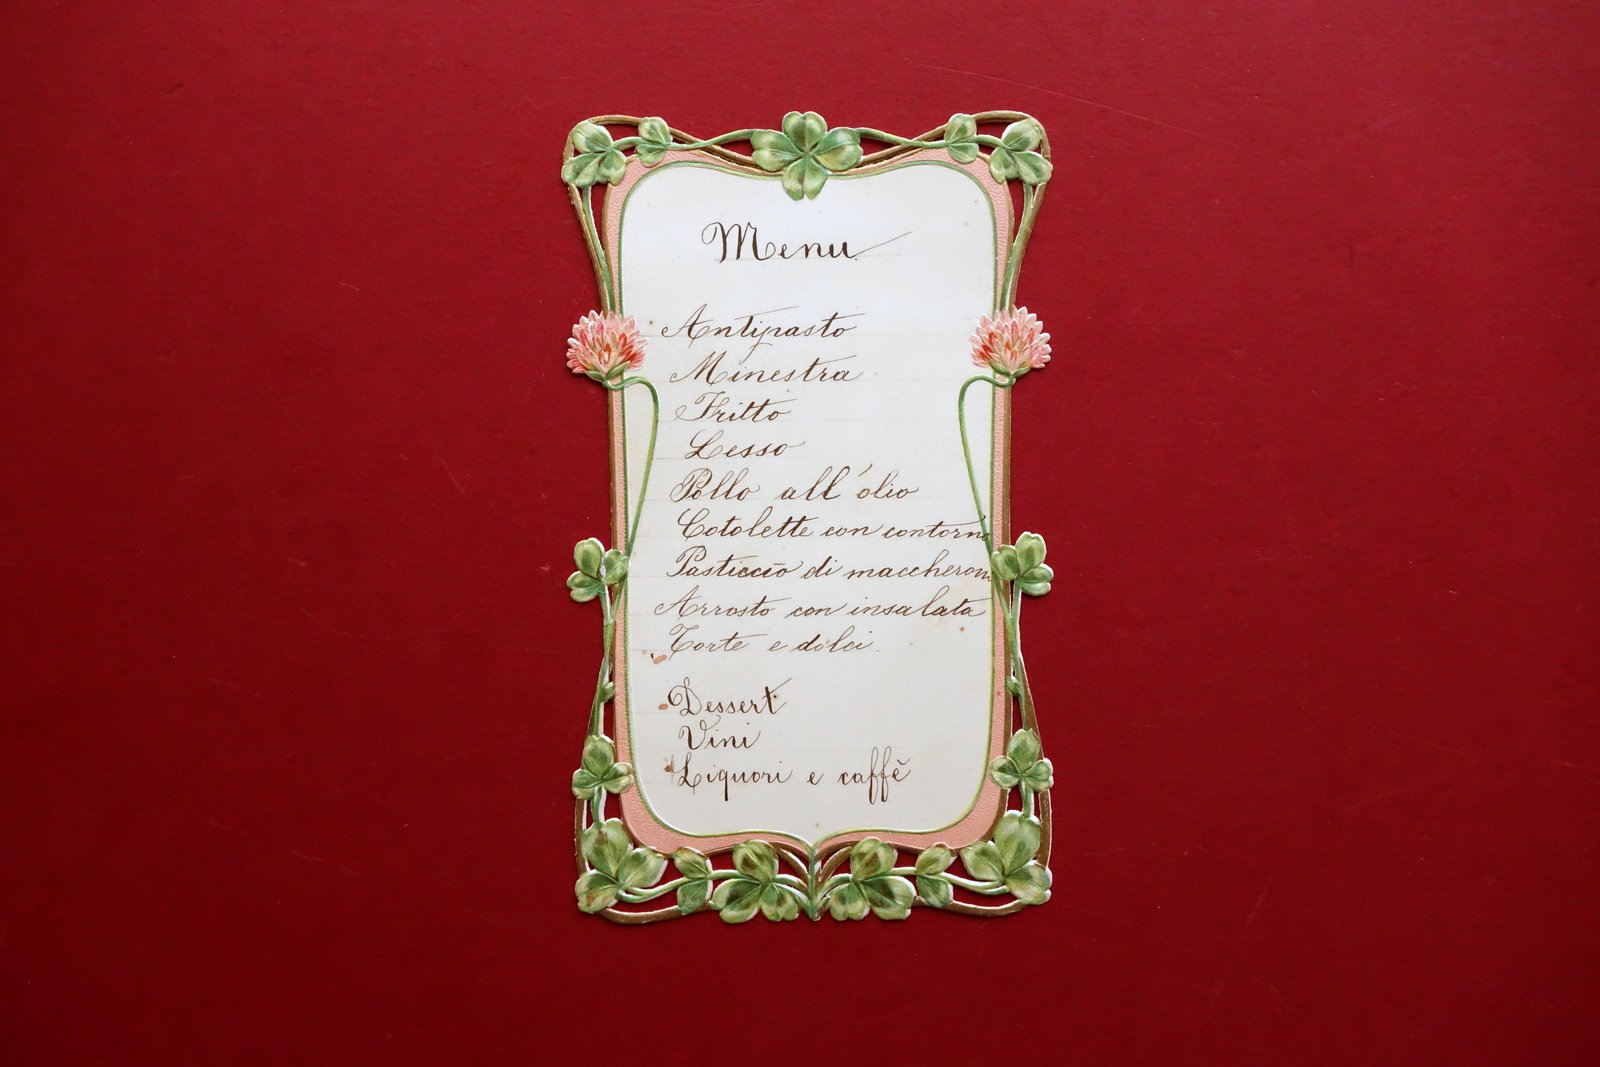 Menu.
Antipasto
Minestra
Fritto
Lesso
Pollo all'olio
Cotolette con contorno
Pasticcio di maccheroni
Arrosto con insalata
Torte e dolci.
Dessert
Vini
Liquori e caffè